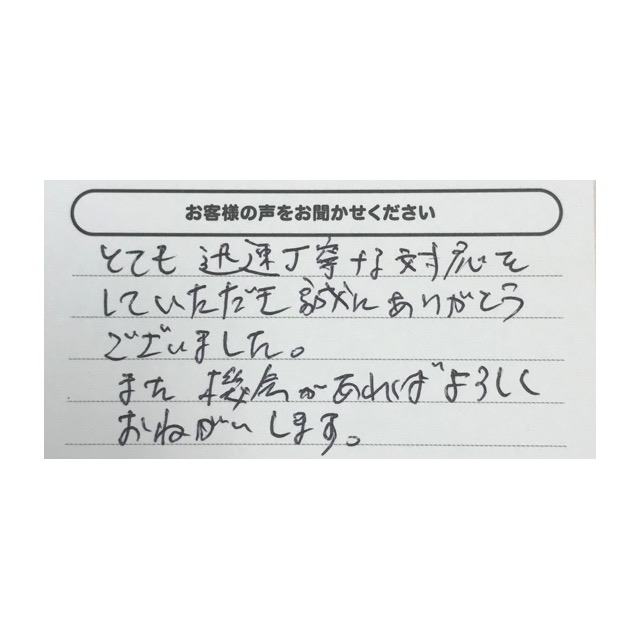 お客様の声をお聞かせください
とても迅速丁寧な対応を
していただき誠にありがとう
ございました。
また機会があればよろしく
おねがいします。